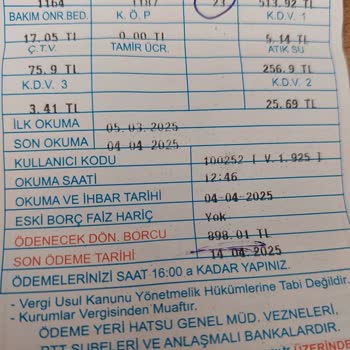 1164 1187 23 513.92 TL
BAKIM ONR.BED. K. Ö. P K.D.V. 1
17.05 TL 0.00 TL 5.14 TL
Ç.T.V. TAMİR ÜCR. ATIK SU
75.9 TL 256.9 TL
K.D.V. 3 K.D.V. 2
3.41 TL 25.69 TL
İLK OKUMA 05.03.2025
SON OKUMA 04-04-2025
KULLANICI KODU 100252 [ V.1.925 ]
OKUMA SAATİ 12:46
OKUMA VE İHBAR TARİHİ 04-04-2025
ESKİ BORÇ FAİZ HARİÇ Yok
ÖDENECEK DÖN. BORCU 898.01 TL
SON ÖDEME TARİHİ 14 04 2025
ÖDEMELERİNİZİ SAAT 16:00 a KADAR YAPINIZ.
- Vergi Usul Kanunu Yönetmelik Hükümlerine Tabi Değildir.
- Kurumlar Vergisinden Muaftır.
ÖDEME YERİ HATSU GENEL MÜD. VEZNELERİ,
PTT ŞUBELERİ VE ANLAŞMALI BANKALARDIR.
ÜZERİNDE